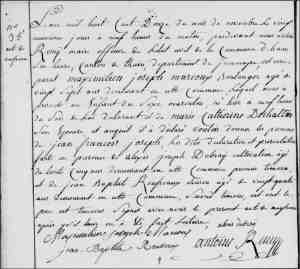 No
36
L'an mil huit cent onze du mois de novembre le vingt
neuvieme jour à neuf heures du matin, pardevant nous antoine
Remy maire officier de l'état civil de la Commune de ham
sur heure, Canton de Thuin, departement de jemmappe est com-
paru maximilien joseph marcoux Boulanger agé de
vingt sept ans demeurant en cette Commune lequel nous a
presenté un Enfant du Sexe masculin né hier à neuf heures
du soir de lui declarant et de marie Catherine
son Epouse et auquel il a declaré vouloir donner les prenoms
de jean francois joseph, les dites declaration et presentation
fait en presence de joseph Debray cultivateur agé
de trente cinq ans demeurant en cette Commune premier temoin
et de jean Baptiste agé de vingt quatre
ans demeurant en cette Commune, second temoin, ont le
pere et temoins signé avec nous le present acte de naissance
après qu'il leur en a été fait lecture,
Maximilien joseph Marcoux
jean Baptiste
antoine Remy